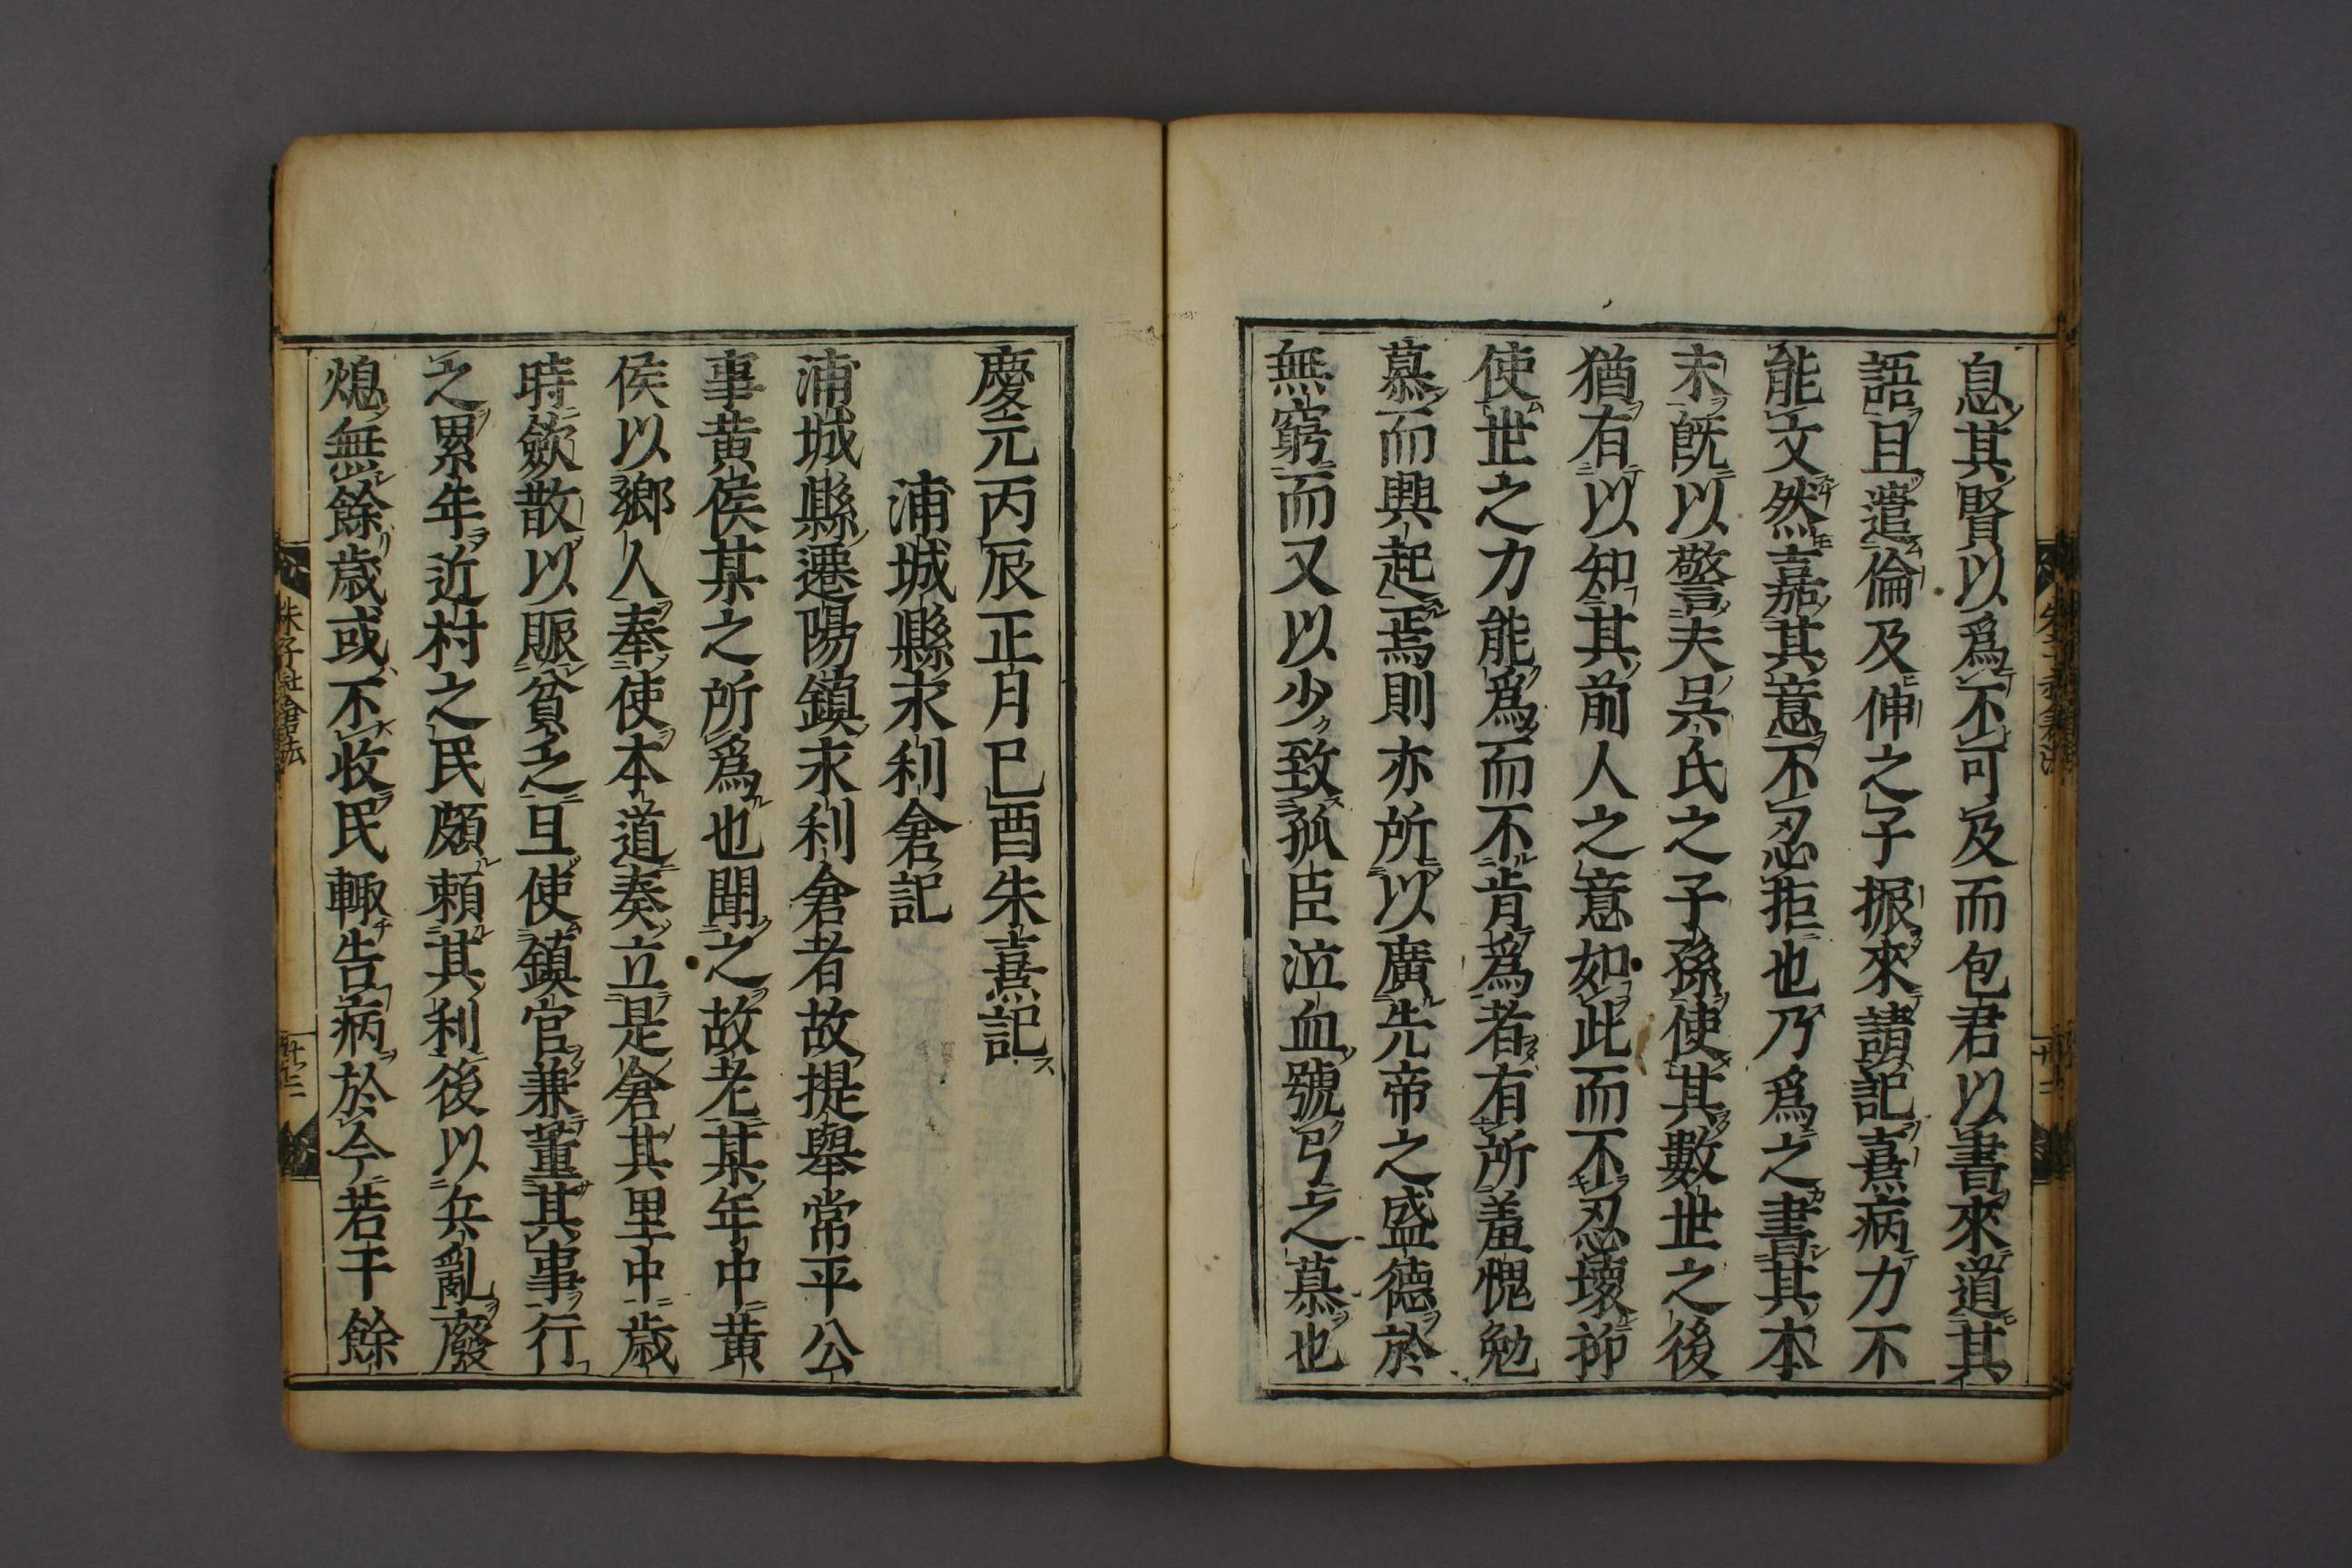 息其賢以爲不可及而包君以書來道其
語且遣倫及伸之子振來請記熹病力不
能文然嘉其意不忍拒也乃爲之書其本
末既以警夫吳氏之子孫使其數世之後
猶有以知其前人之意如此而不忍壞抑
使世之力能爲而不肯爲者有所羞愧勉
慕而興起焉則亦所以廣先帝之盛德於
無窮而又以少致孤臣泣血號弓之慕也
慶元丙辰正月巳酉朱熹記
浦城縣永利倉記
浦城縣遷陽鎮永利倉者故提舉常平公
事黄侯某之所爲也聞之故老某年中黄
侯以鄉人奉使本道奏立是倉其里中歲
時歛散以賑貧乏且使鎮官兼董其事行
之累年近村之民頗賴其利後以兵亂廢
熄無餘歲或不收民輒告病於今若干餘
朱子社倉法